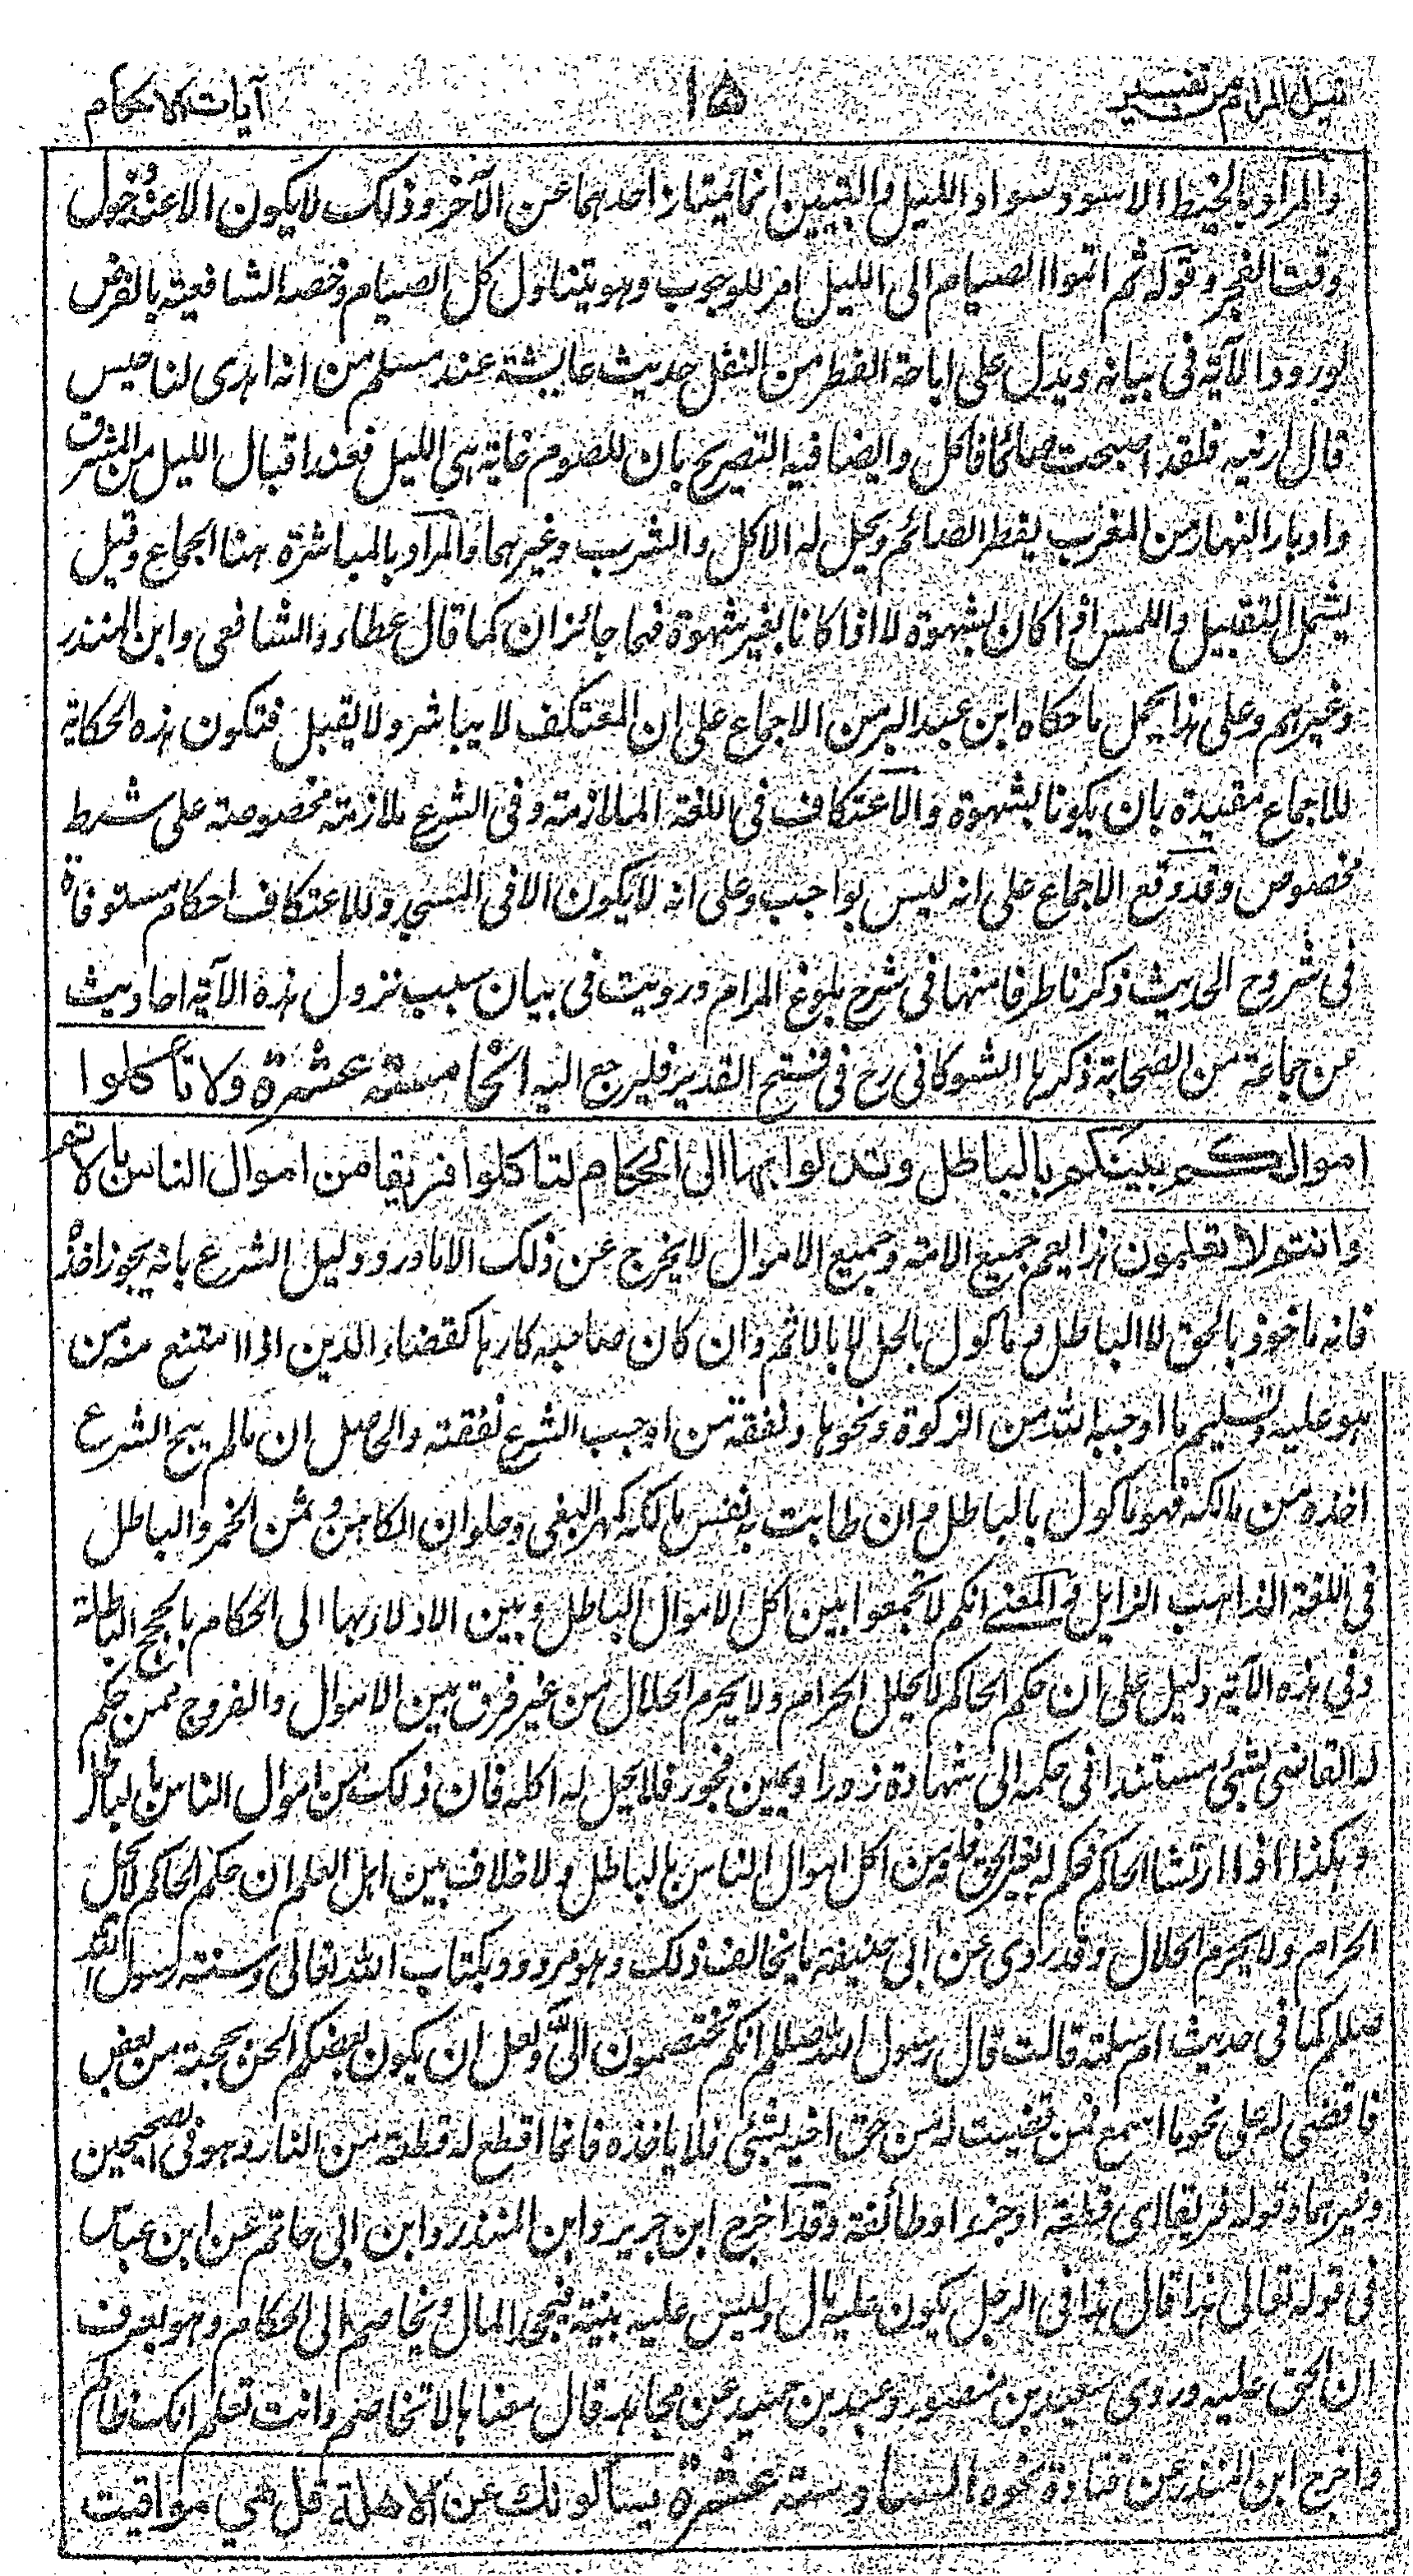 نيل المرام من تفسير
١٥
آيات الاحكام
والمراد بالخيط الاسود سواد الليل والتبيين انما يمتاز احدهما عن الآخر وذلك لا يكون الا عند دخول
وقت الفجر وقوله ثم اتموا الصيام الى الليل امر للوجوب وهو يتناول كل الصيام وخصه الشافعية بالفرض
لورود الآية في بيانه ويدل على اباحة الفطر من النفل حديث عايشة عند مسلم من انه اهدى لنا حيس
قال ارنيه فلقد اصبحت صائما فاكل وايضا فيه التصريح بان للصوم غاية هي الليل فعند اقبال الليل من المشرق
وادبار النهار من المغرب يفطر الصائم ويحل له الاكل والشرب وغيرهما والمراد بالمباشرة هنا الجماع وقيل
يشمل التقبيل واللمس اذا كان بشهوة لا اذا كانا بغير شهوة فهما جائزان كما قال عطاء والشافعي وابن المنذر
وغيرهم وعلى هذا يحمل ما حكاه ابن عبد البر من الاجماع على ان المعتكف لا يباشر ولا يقبل فتكون هذه الحكاية
للاجماع مقيدة بان يكونا بشهوة والاعتكاف في اللغة الملازمة وفي الشرع ملازمة مخصوصة على شرط
مخصوص وقد وقع الاجماع على انه ليس بواجب وعلى انه لا يكون الا في المسجد وللاعتكاف احكام مستوفاة
في شروح الحديث ذكرنا طرفا منها في شرح بلوغ المرام ورويت في بيان سبب نزول هذه الآية احاديث
عن جماعة من الصحابة ذكرها الشوكاني رح في فتح القدير فليرجع اليه الخامسة عشرة ولا تأكلوا
اموالكم بينكم بالباطل وتدلوا بها الى الحكام لتاكلوا فريقا من اموال الناس بالاثم
وانتم تعلمون هذا يعم جميع الامة وجميع الاموال لا يخرج عن ذلك الا ما ورد دليل الشرع بانه يجوز اخذه
فانه ماخوذ بالحق لا بالباطل وماكول بالحل لا بالاثم وان كان صاحبه كارها كقضاء الدين اذا امتنع منه من
هو عليه وتسليم ما اوجبه الله من الزكوة ونحوها ونفقة من اوجب الشرع نفقته والحاصل ان ما لم يبح الشرع
اخذه من مالكه فهو ماكول بالباطل وان طابت به نفس مالكه كمهر البغي وحلوان الكاهن وثمن الخمر والباطل
في اللغة الذاهب الزايل والمعنى انكم لا تجمعوا بين اكل الاموال بالباطل وبين الادلاء بها الى الحكام بالحجج الباطلة
وفي هذه الآية دليل على ان حكم الحاكم لا يحلل الحرام ولا يحرم الحلال من غير فرق بين الاموال والفروج فمن حكم
له القاضي بشيء مستندا في حكمه الى شهادة زور او يمين فجور فلا يحل له اكله فان ذلك من اموال الناس بالباطل
وهكذا اذا ارتشا الحاكم فحكم له بغير الحق فانه من اكل اموال الناس بالباطل ولا خلاف بين اهل العلم ان حكم الحاكم لا يحل
الحرام ولا يحرم الحلال وقد روي عن ابي حنيفة ما يخالف ذلك وهو مردود بكتاب الله تعالى وسنة رسول الله
صللم كما في حديث ام سلمة قالت قال رسول الله صللم انكم تختصمون الي ولعل ان يكون بعضكم الحن بحجته من بعض
فاقضي له على نحو ما اسمع فمن قضيت له من حق اخيه بشيء فلا ياخذه فانما اقطع له قطعة من النار وهو في الصحيحين
وغيرهما وقوله فريقا اي قطعة او جزءا او طائفة وقد اخرج ابن جرير وابن المنذر وابن ابي حاتم عن ابن عباس
في قوله تعالى هذا قال هذا في الرجل يكون عليه مال وليس عليه بينة فيجحد المال ويخاصم الى الحكام وهو يعرف
ان الحق عليه وروى سعيد بن منصور وعبد بن حميد عن مجاهد قال معناها لا تخاصم وانت تعلم انك ظالم
واخرج ابن المنذر عن قتادة نحوه السادسة عشرة يسألونك عن الاهلة قل هي مواقيت